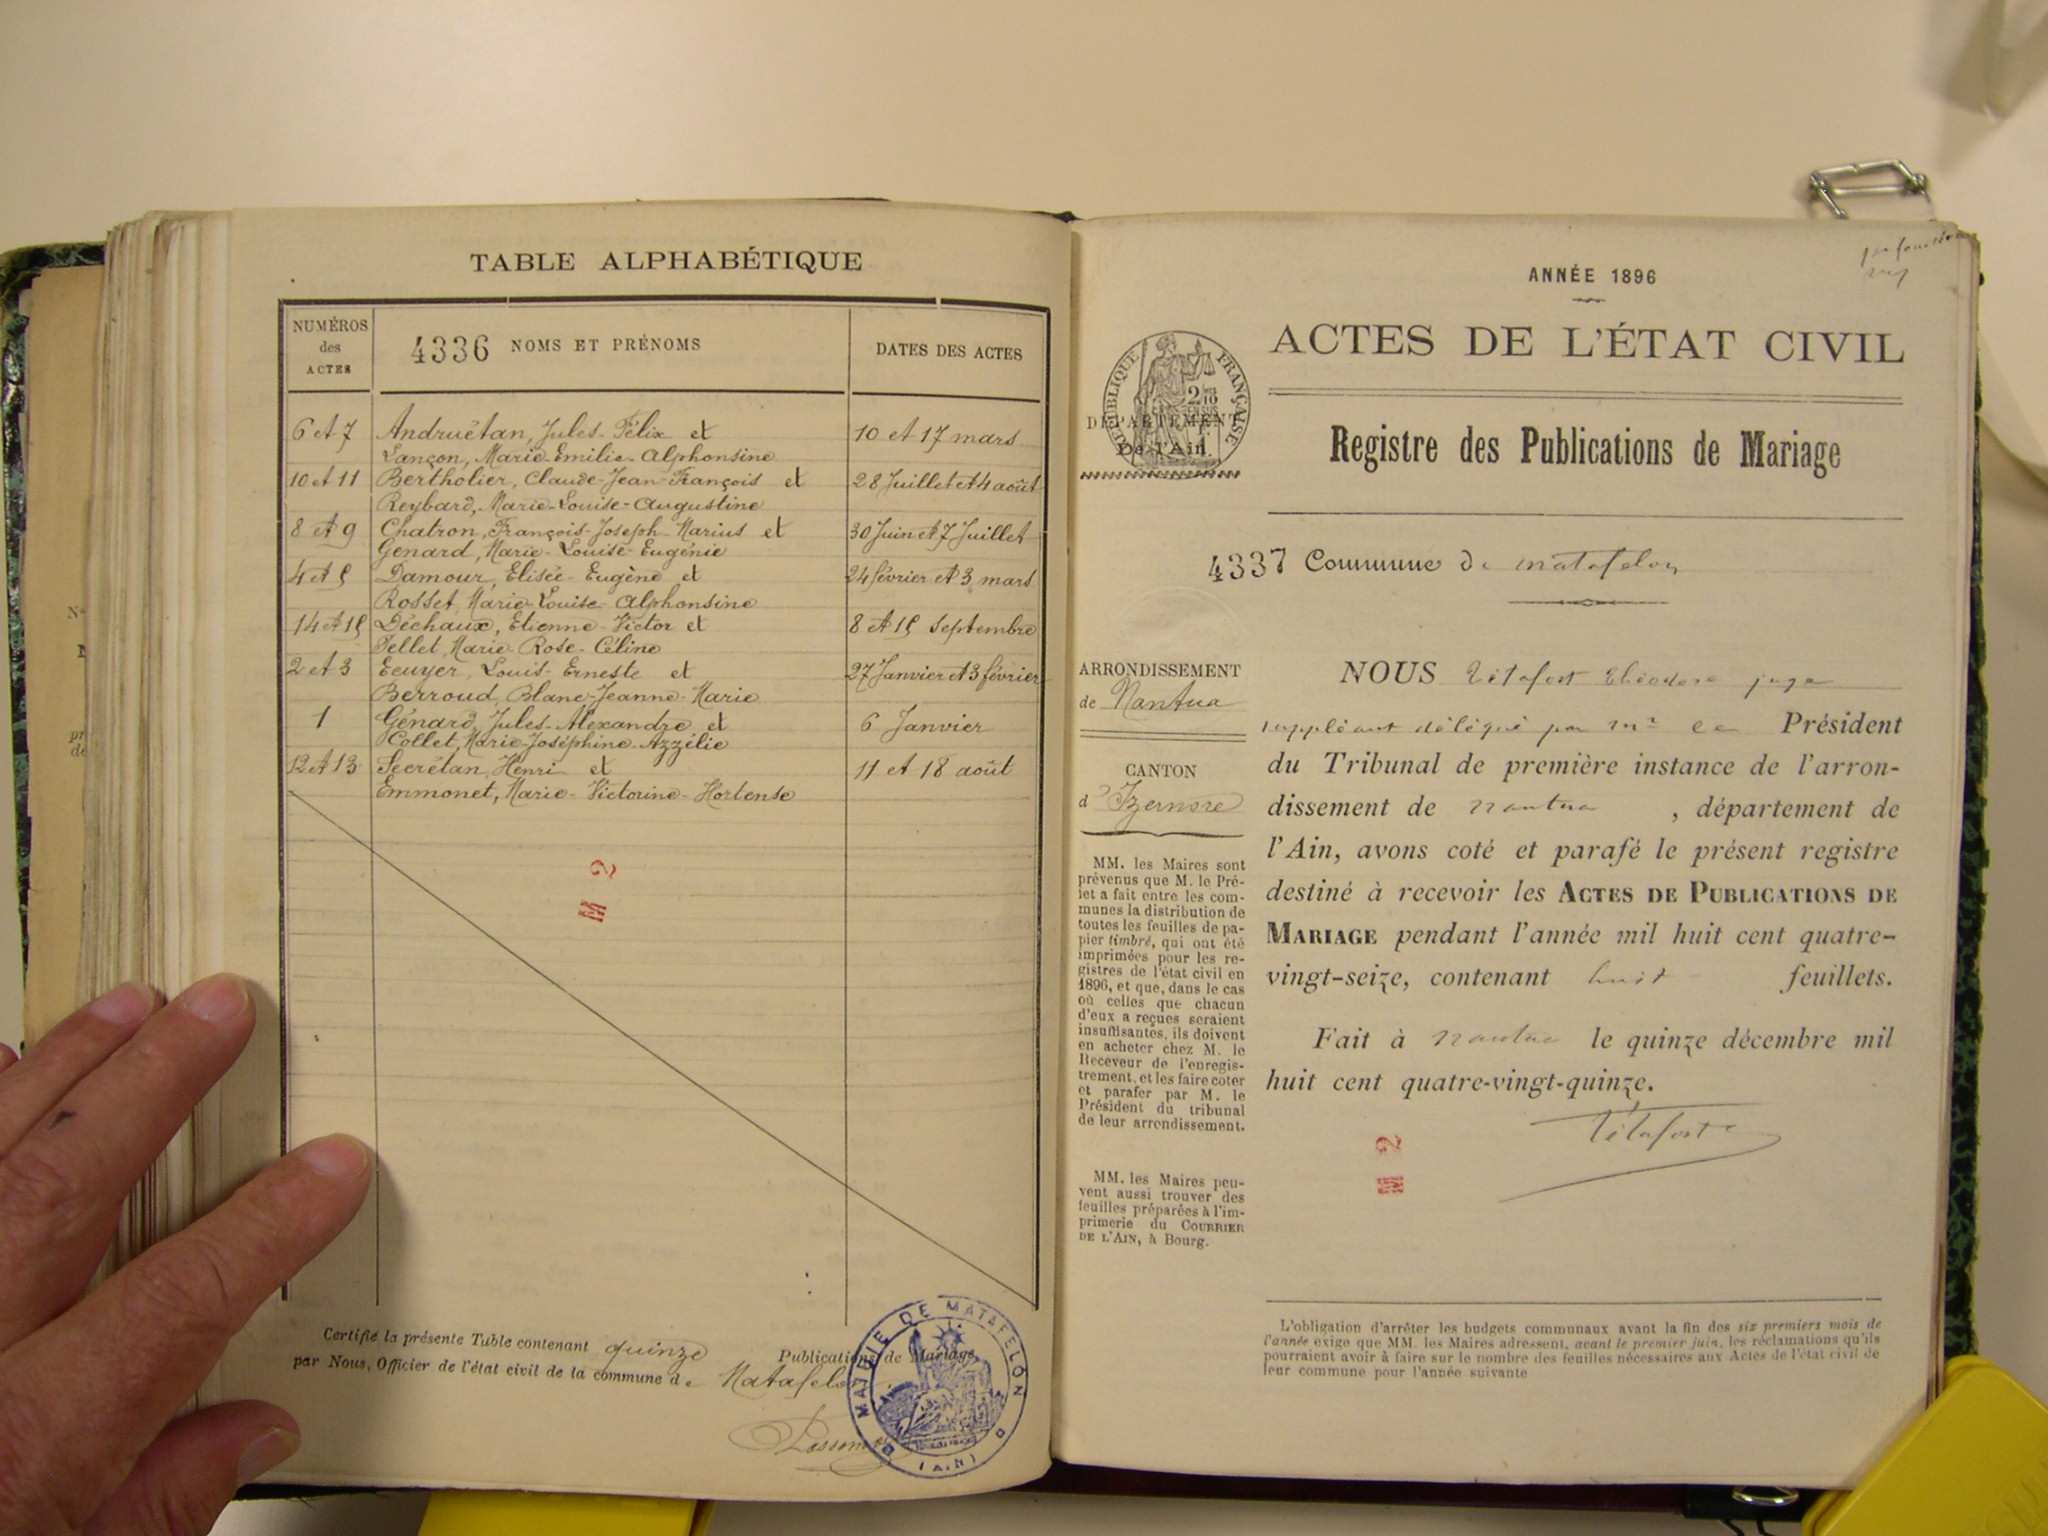 TABLE ALPHABÉTIQUE
NUMÉROS
des
ACTES
4336 NOMS ET PRÉNOMS
DATES DES ACTES
6 et 7 Andruétan, Jules-Félix et 10 et 17 mars
Lançon, Marie-Emilie-Alphonsine
10 et 11 Bertholier, Claude-Jean-François et 28 Juillet et 4 août
Reybard, Marie-Louise-Augustine
8 et 9 Chatron, François-Joseph-Marius et 30 Juin et 7 Juillet
Genard, Marie-Louise-Eugénie
4 et 5 Damour, Elisée-Eugène et 24 février et 3 mars
Rosset, Marie-Louise-Alphonsine
14 et 15 Déchaux, Etienne-Victor et 8 et 15 septembre
Tellet, Marie-Rose-Céline
2 et 3 Ecuyer, Louis-Erneste et 27 Janvier et 3 février
Berroud, Blanc-Jeanne-Marie
1 Génard, Jules-Alexandre et 6 Janvier
Collet, Marie-Joséphine-Azzélie
12 et 13 Secrétan, Henri et 11 et 18 août
Emmonet, Marie-Victorine-Hortense
M 2
Certifié la présente Table contenant quinze Publications de Mariage
par Nous, Officier de l'état civil de la commune de Matafelon
MAIRIE DE MATAFELON
(AIN)
ANNÉE 1896
ACTES DE L'ÉTAT CIVIL
RÉPUBLIQUE FRANÇAISE
2/10
DÉPARTEMENT
De l'Ain.
Registre des Publications de Mariage
4337 Commune de Matafelon
ARRONDISSEMENT
de Nantua
CANTON
d'Izernore
MM. les Maires sont
prévenus que M. le Pré-
fet a fait entre les com-
munes la distribution de
toutes les feuilles de pa-
pier timbré, qui ont été
imprimées pour les re-
gistres de l'état civil en
1896, et que, dans le cas
où celles que chacun
d'eux a reçues seraient
insuffisantes, ils doivent
en acheter chez M. le
Receveur de l'enregis-
trement, et les faire coter
et parafer par M. le
Président du tribunal
de leur arrondissement.
MM. les Maires peu-
vent aussi trouver des
feuilles préparées à l'im-
primerie du COURRIER
DE L'AIN, à Bourg.
NOUS Tétafort théodore juge
suppléant délégué par Mr le Président
du Tribunal de première instance de l'arron-
dissement de nantua , département de
l'Ain, avons coté et parafé le présent registre
destiné à recevoir les ACTES DE PUBLICATIONS DE
MARIAGE pendant l'année mil huit cent quatre-
vingt-seize, contenant huit feuillets.
Fait à nantua le quinze décembre mil
huit cent quatre-vingt-quinze.
Tétafort
M 2
L'obligation d'arrêter les budgets communaux avant la fin des six premiers mois de
l'année exige que MM. les Maires adressent, avant le premier juin, les réclamations qu'ils
pourraient avoir à faire sur le nombre des feuilles nécessaires aux Actes de l'état civil de
leur commune pour l'année suivante